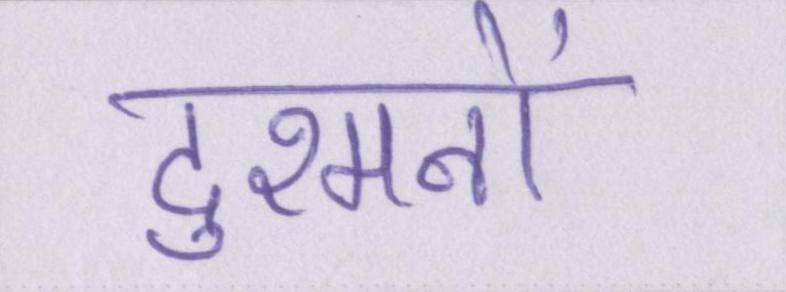 दुश्मनों